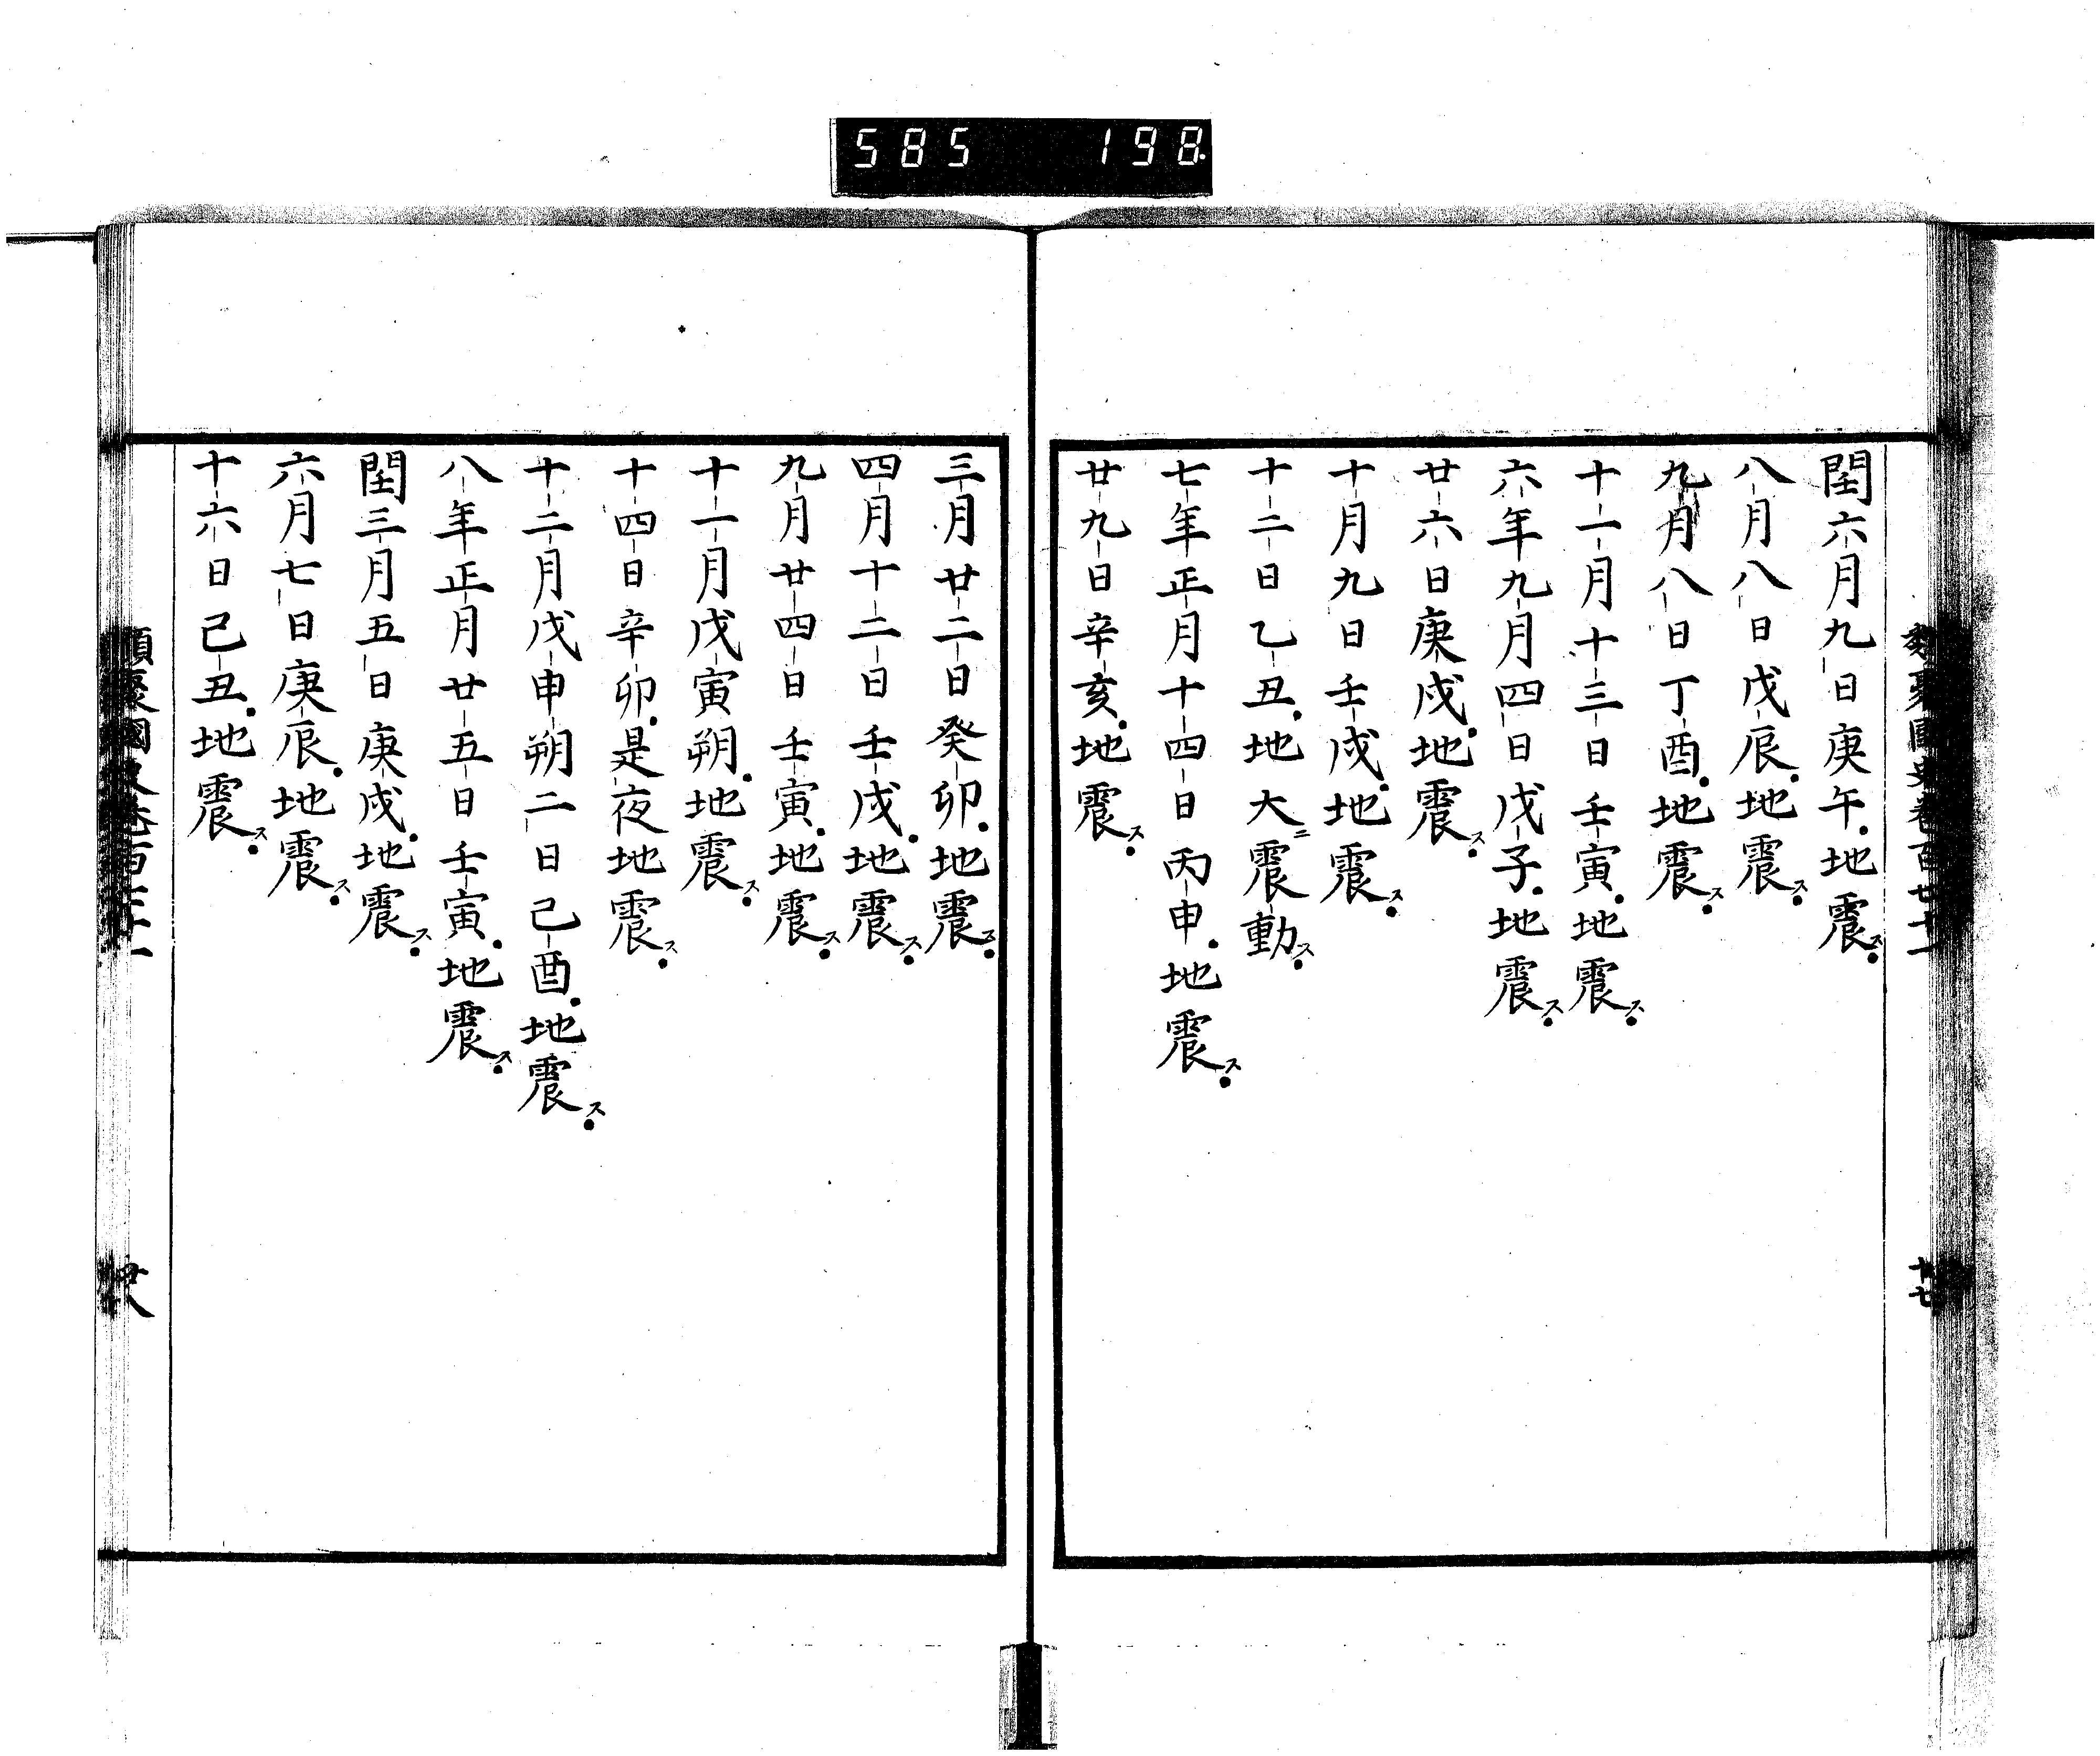 585 198
閏六月九日庚午地震ス
八月八日戊辰地震ス
九月八日丁酉地震ス
十一月十三日壬寅地震ス
六年九月四日戊子地震ス
廿六日庚戌地震ス
十月九日壬戌地震ス
十二日乙丑地大ニ震動ス
七年正月十四日丙申地震ス
廿九日辛亥地震ス
三月廿二日癸卯地震ス
四月十二日壬戌地震ス
九月廿四日壬寅地震ス
十一月戊寅朔地震ス
十四日辛卯是夜地震ス
十二月戊申朔二日己酉地震ス
八年正月廿五日壬寅地震ス
閏三月五日庚戌地震ス
六月七日庚辰地震ス
十六日己丑地震ス